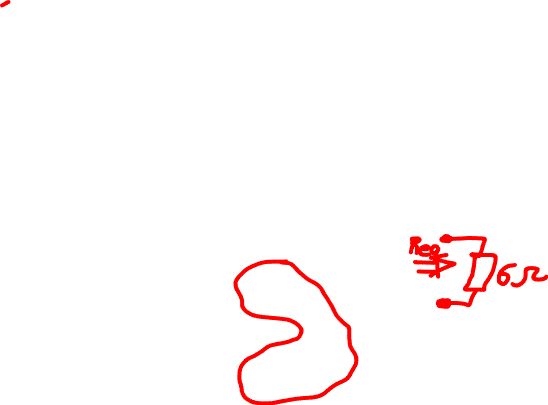 Req
6Ω